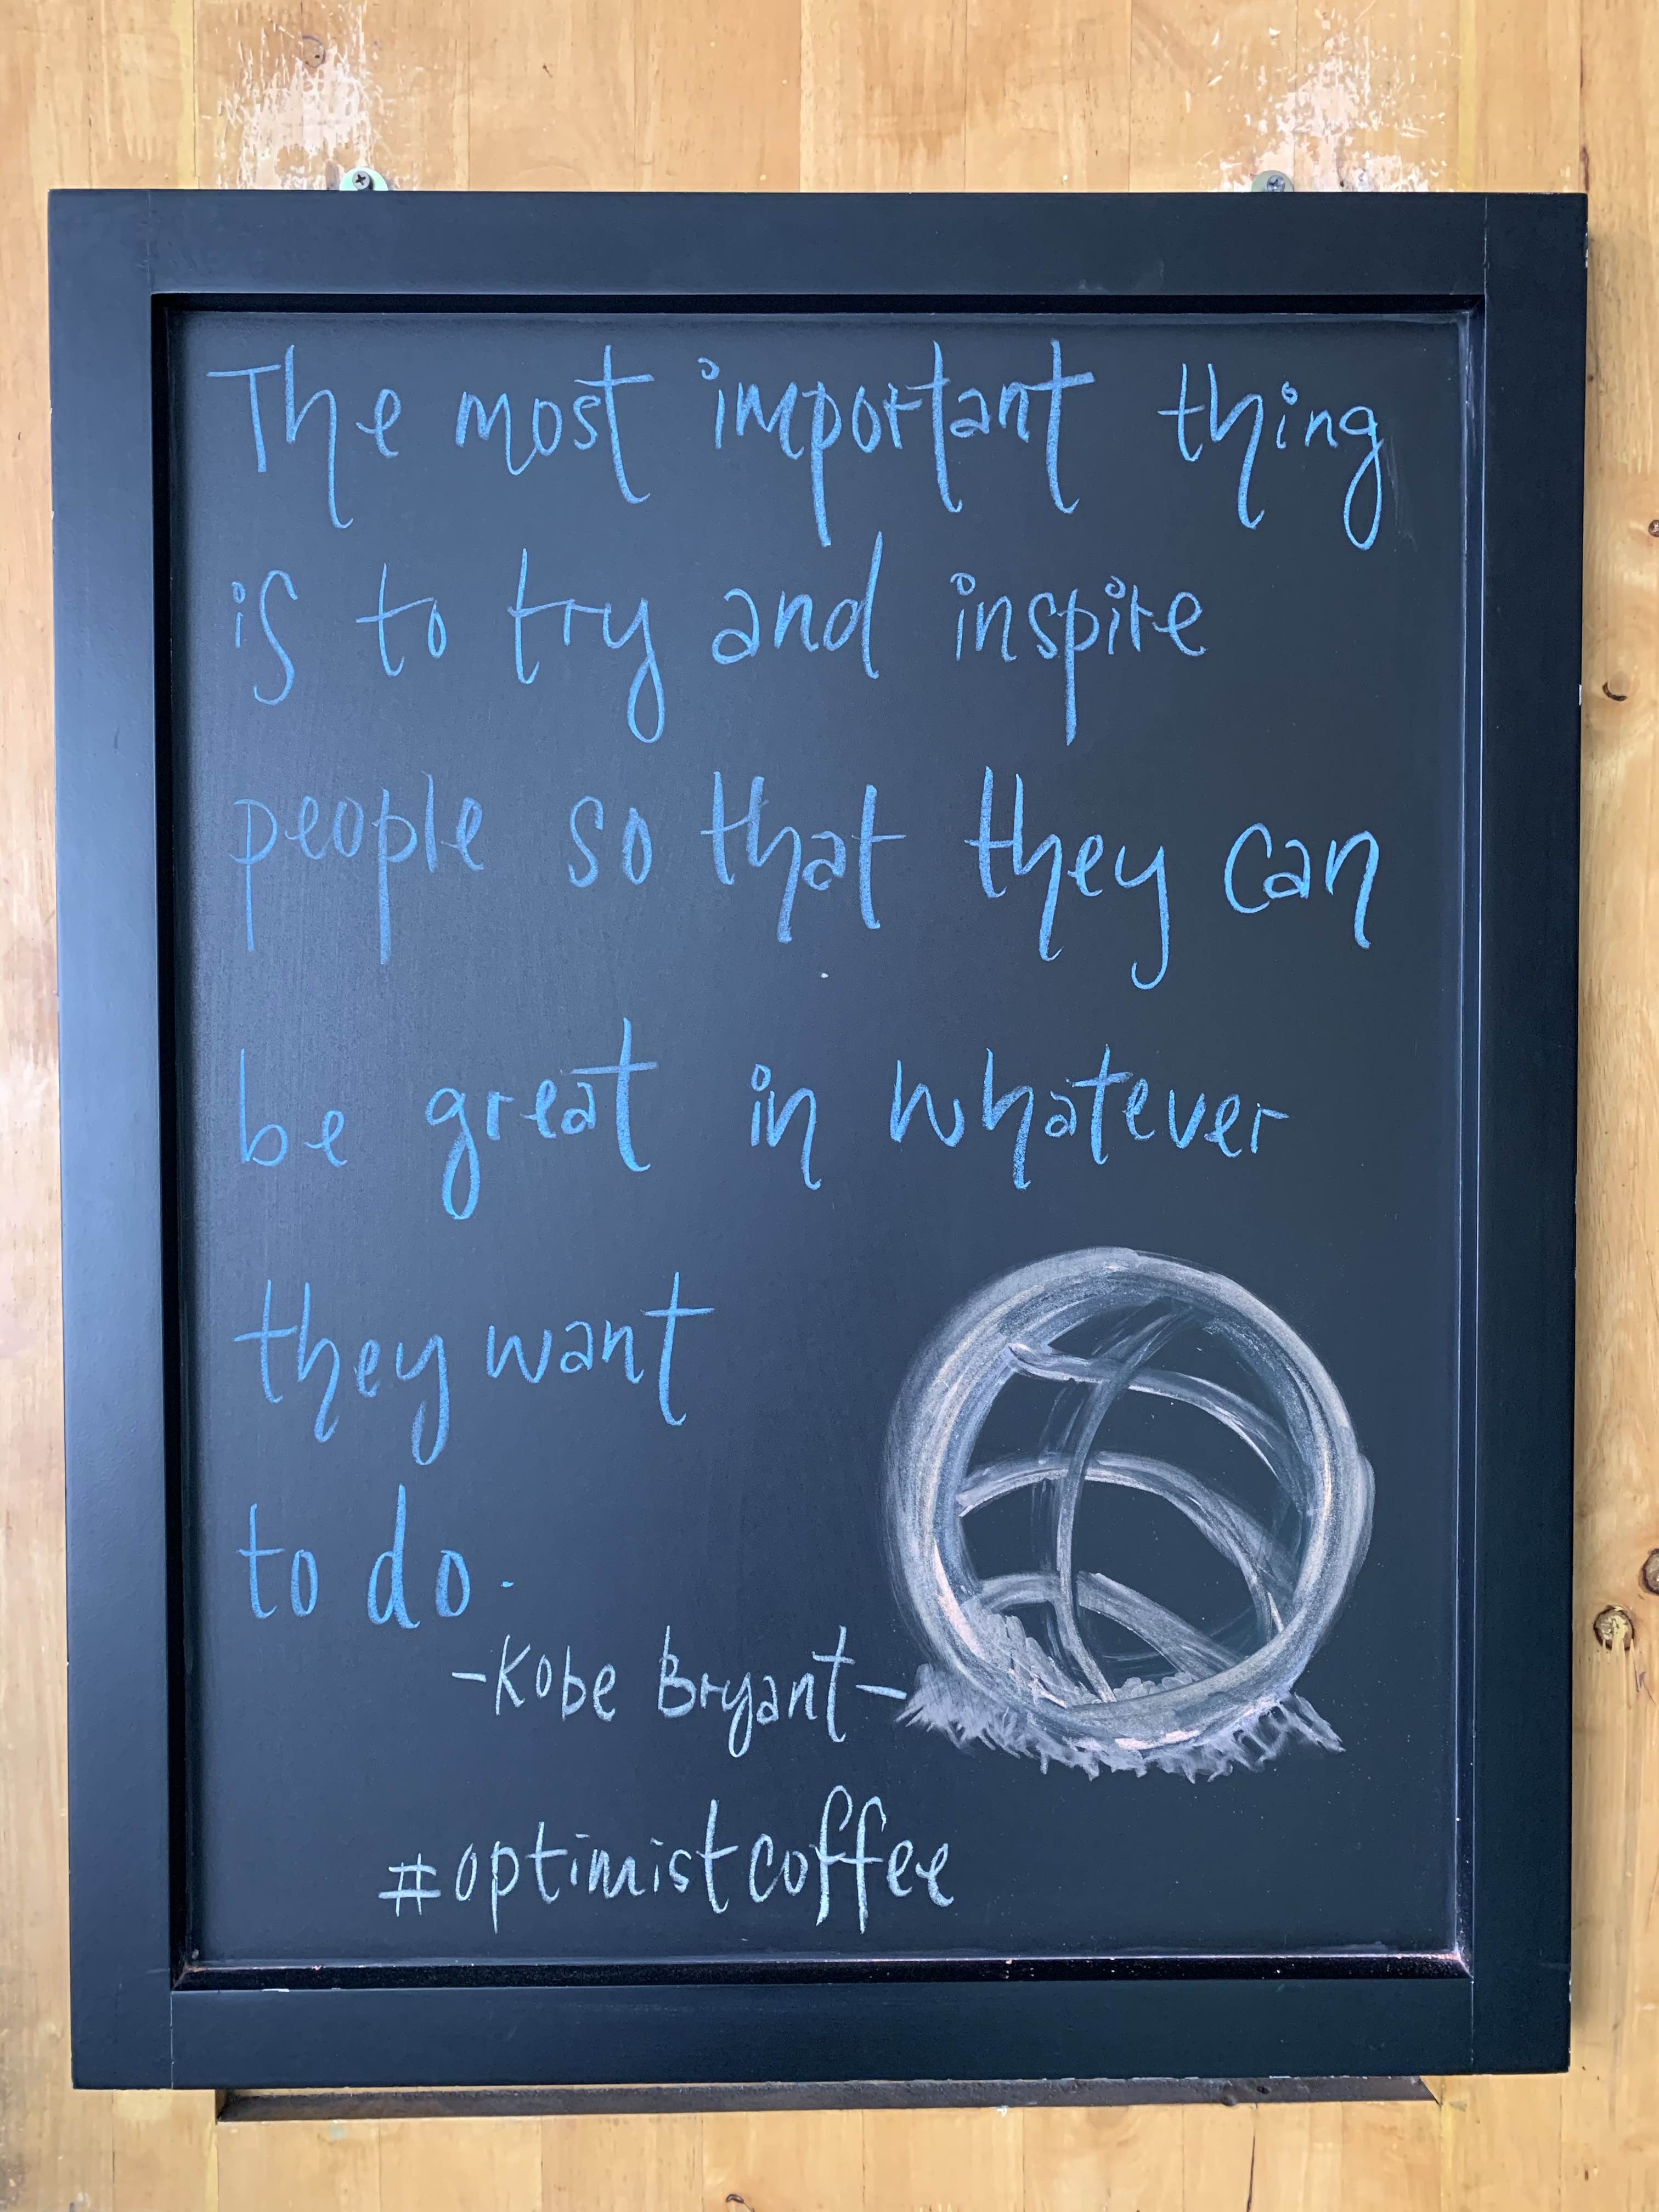 The most important thing
is to try and inspire
people so that they can
be great in whatever
they want
to do.
-Kobe Bryant-
#optimistcoffee